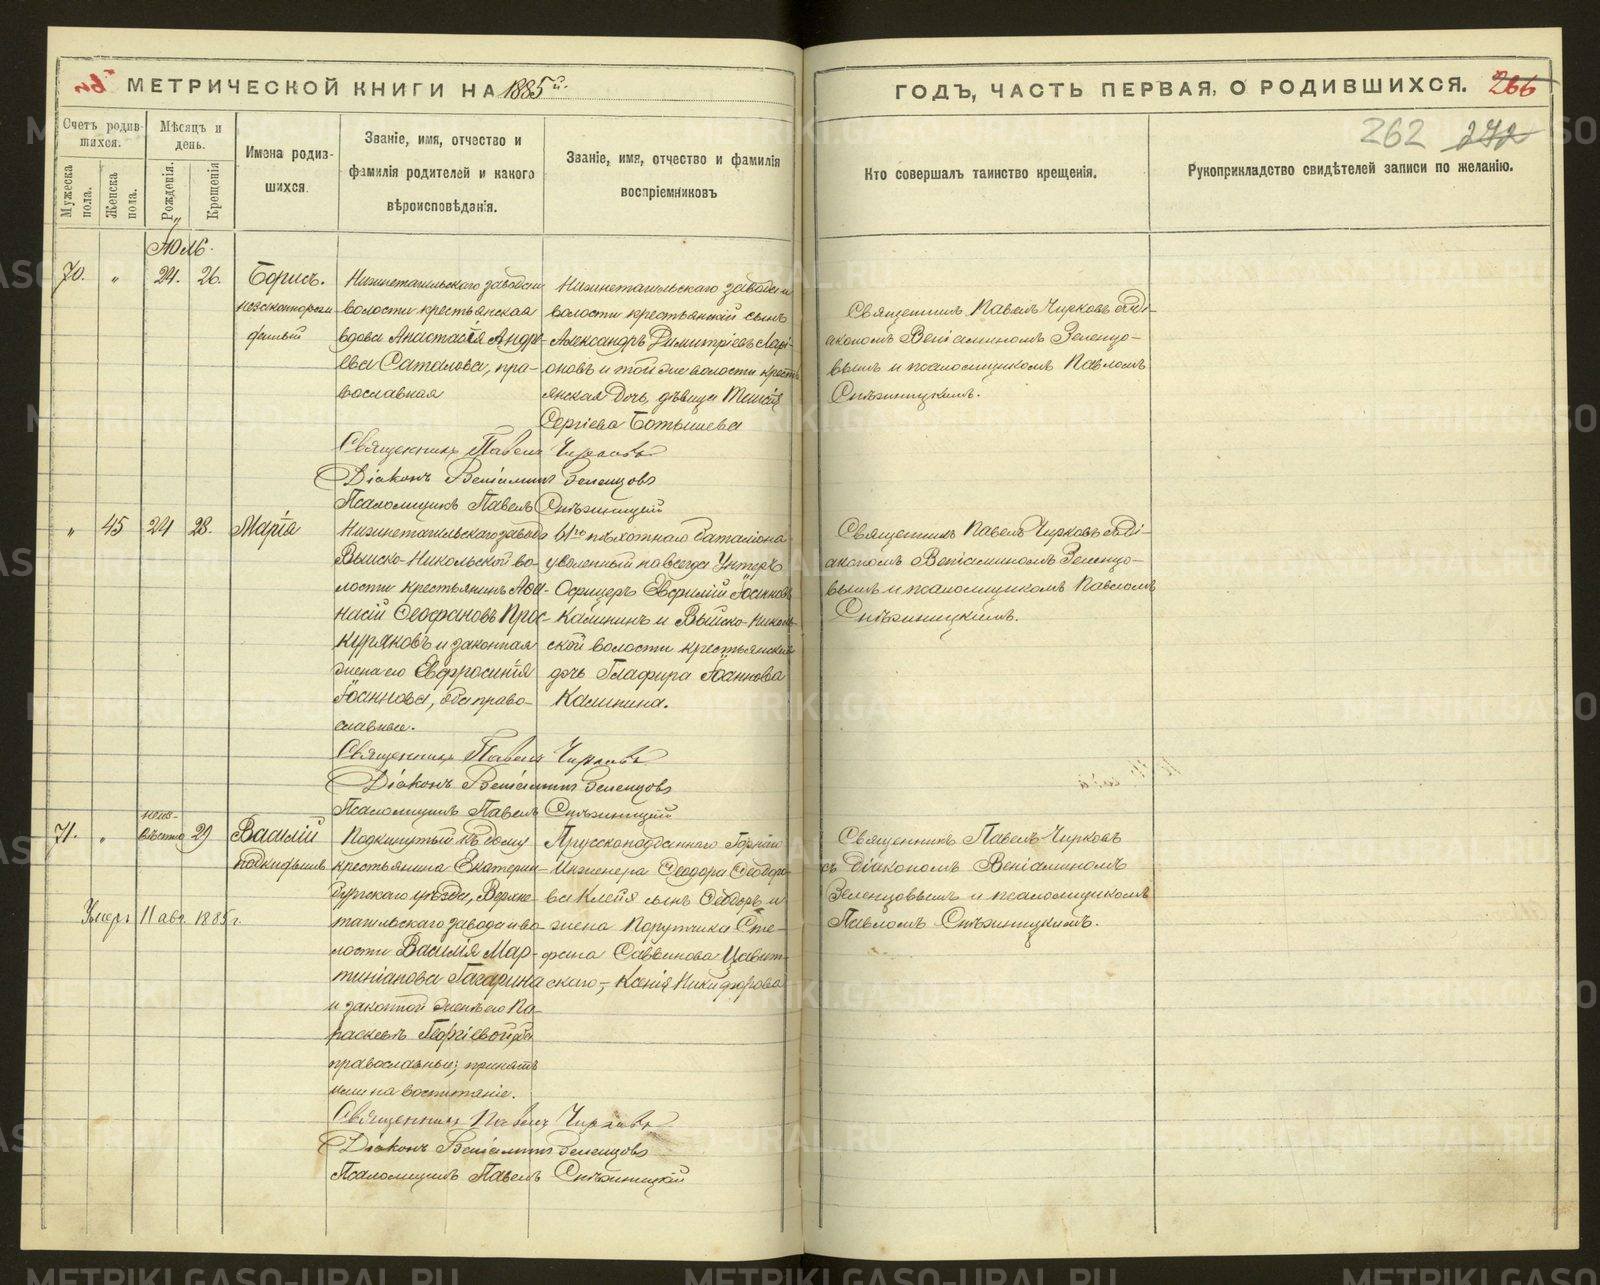 МЕТРИЧЕСКОЙ КНИГИ НА 1885й.
ГОДЪ, ЧАСТЬ ПЕРВАЯ, О РОДИВШИХСЯ. 266
262 272
Счетъ родив-
шихся.
Мужеска
пола.
Женска
пола.
Мѣсяцъ и
день.
Рожденія.
Крещенія
Имена родив-
шихся.
Званіе, имя, отчество и
фамилія родителей и какого
вѣроисповѣданія.
Званіе, имя, отчество и фамилія
воспріемниковъ
Кто совершалъ таинство крещенія.
Рукоприкладство свидѣтелей записи по желанію.
Юль.
70. " 24. 26.
Борисъ.
незаконнорож
денный
Нижнетагильскаго заводск
волости крестьянская
вдова Анастасія Андре-
ева Саталова, пра-
вославная
Нижнетагильскаго заводск
волости крестьянскій сынъ
Александръ Димитріевъ Лари-
оновъ и той же волости кресть
янская дочь, дѣвица Таисія
Сергіева Ботышева
Священникъ Павелъ Чирковъ съ Ді-
акономъ Веніаминомъ Зеленцо-
вымъ и псаломщикомъ Павломъ
Снѣжницкимъ.
Священникъ Павелъ Чирковъ
Діаконъ Веніаминъ Зеленцовъ
Псаломщикъ Павелъ Снѣжницкій
" 45 24 28.
Марія
Нижнетагильскаго завода
Выйско-Никольской во-
лости крестьянинъ Аѳа-
насій Ѳеофановъ Прос-
куряковъ и законная
жена его Евфросинія
Іоаннова, оба право-
славные.
61го пѣхотнаго баталіона
уволенный навсегда Унтеръ
Офицеръ Евфимій Іоанновъ
Калининъ и Выйско-Николь-
ской волости крестьянская
дочь Глафира Іоаннова
Калинина.
Священникъ Павелъ Чирковъ съ Ді-
акономъ Веніаминомъ Зеленцо-
вымъ и псаломщикомъ Павломъ
Снѣжницкимъ.
Священникъ Павелъ Чирковъ
Діаконъ Веніаминъ Зеленцовъ
Псаломщикъ Павелъ Снѣжницкій
71. " неиз-
вѣстно 29
Василій
подкидышъ
Умеръ 11 авг. 1885 г.
Подкинутый къ дому
крестьянина Екатерин-
бургскаго уѣзда, Верхне-
тагильскаго завода и во-
лости Василія Мар-
тиніанова Гагарина
и законной жены его Па-
раскевы Георгіевой, оба
православные; принятъ
ими на воспитаніе.
Прусскоподданнаго Горнаго
Инженера Ѳеодора Ѳеодоро-
ва Клейя сынъ Ѳеодоръ и
жена Порутчика Сте-
фана Саввинова
скаго, Ксенія Никифорова
Священникъ Павелъ Чирковъ
съ Діакономъ Веніаминомъ
Зеленцовымъ и псаломщикомъ
Павломъ Снѣжницкимъ.
Священникъ Павелъ Чирковъ
Діаконъ Веніаминъ Зеленцовъ
Псаломщикъ Павелъ Снѣжницкій
METRIKI.GASO-URAL.RU